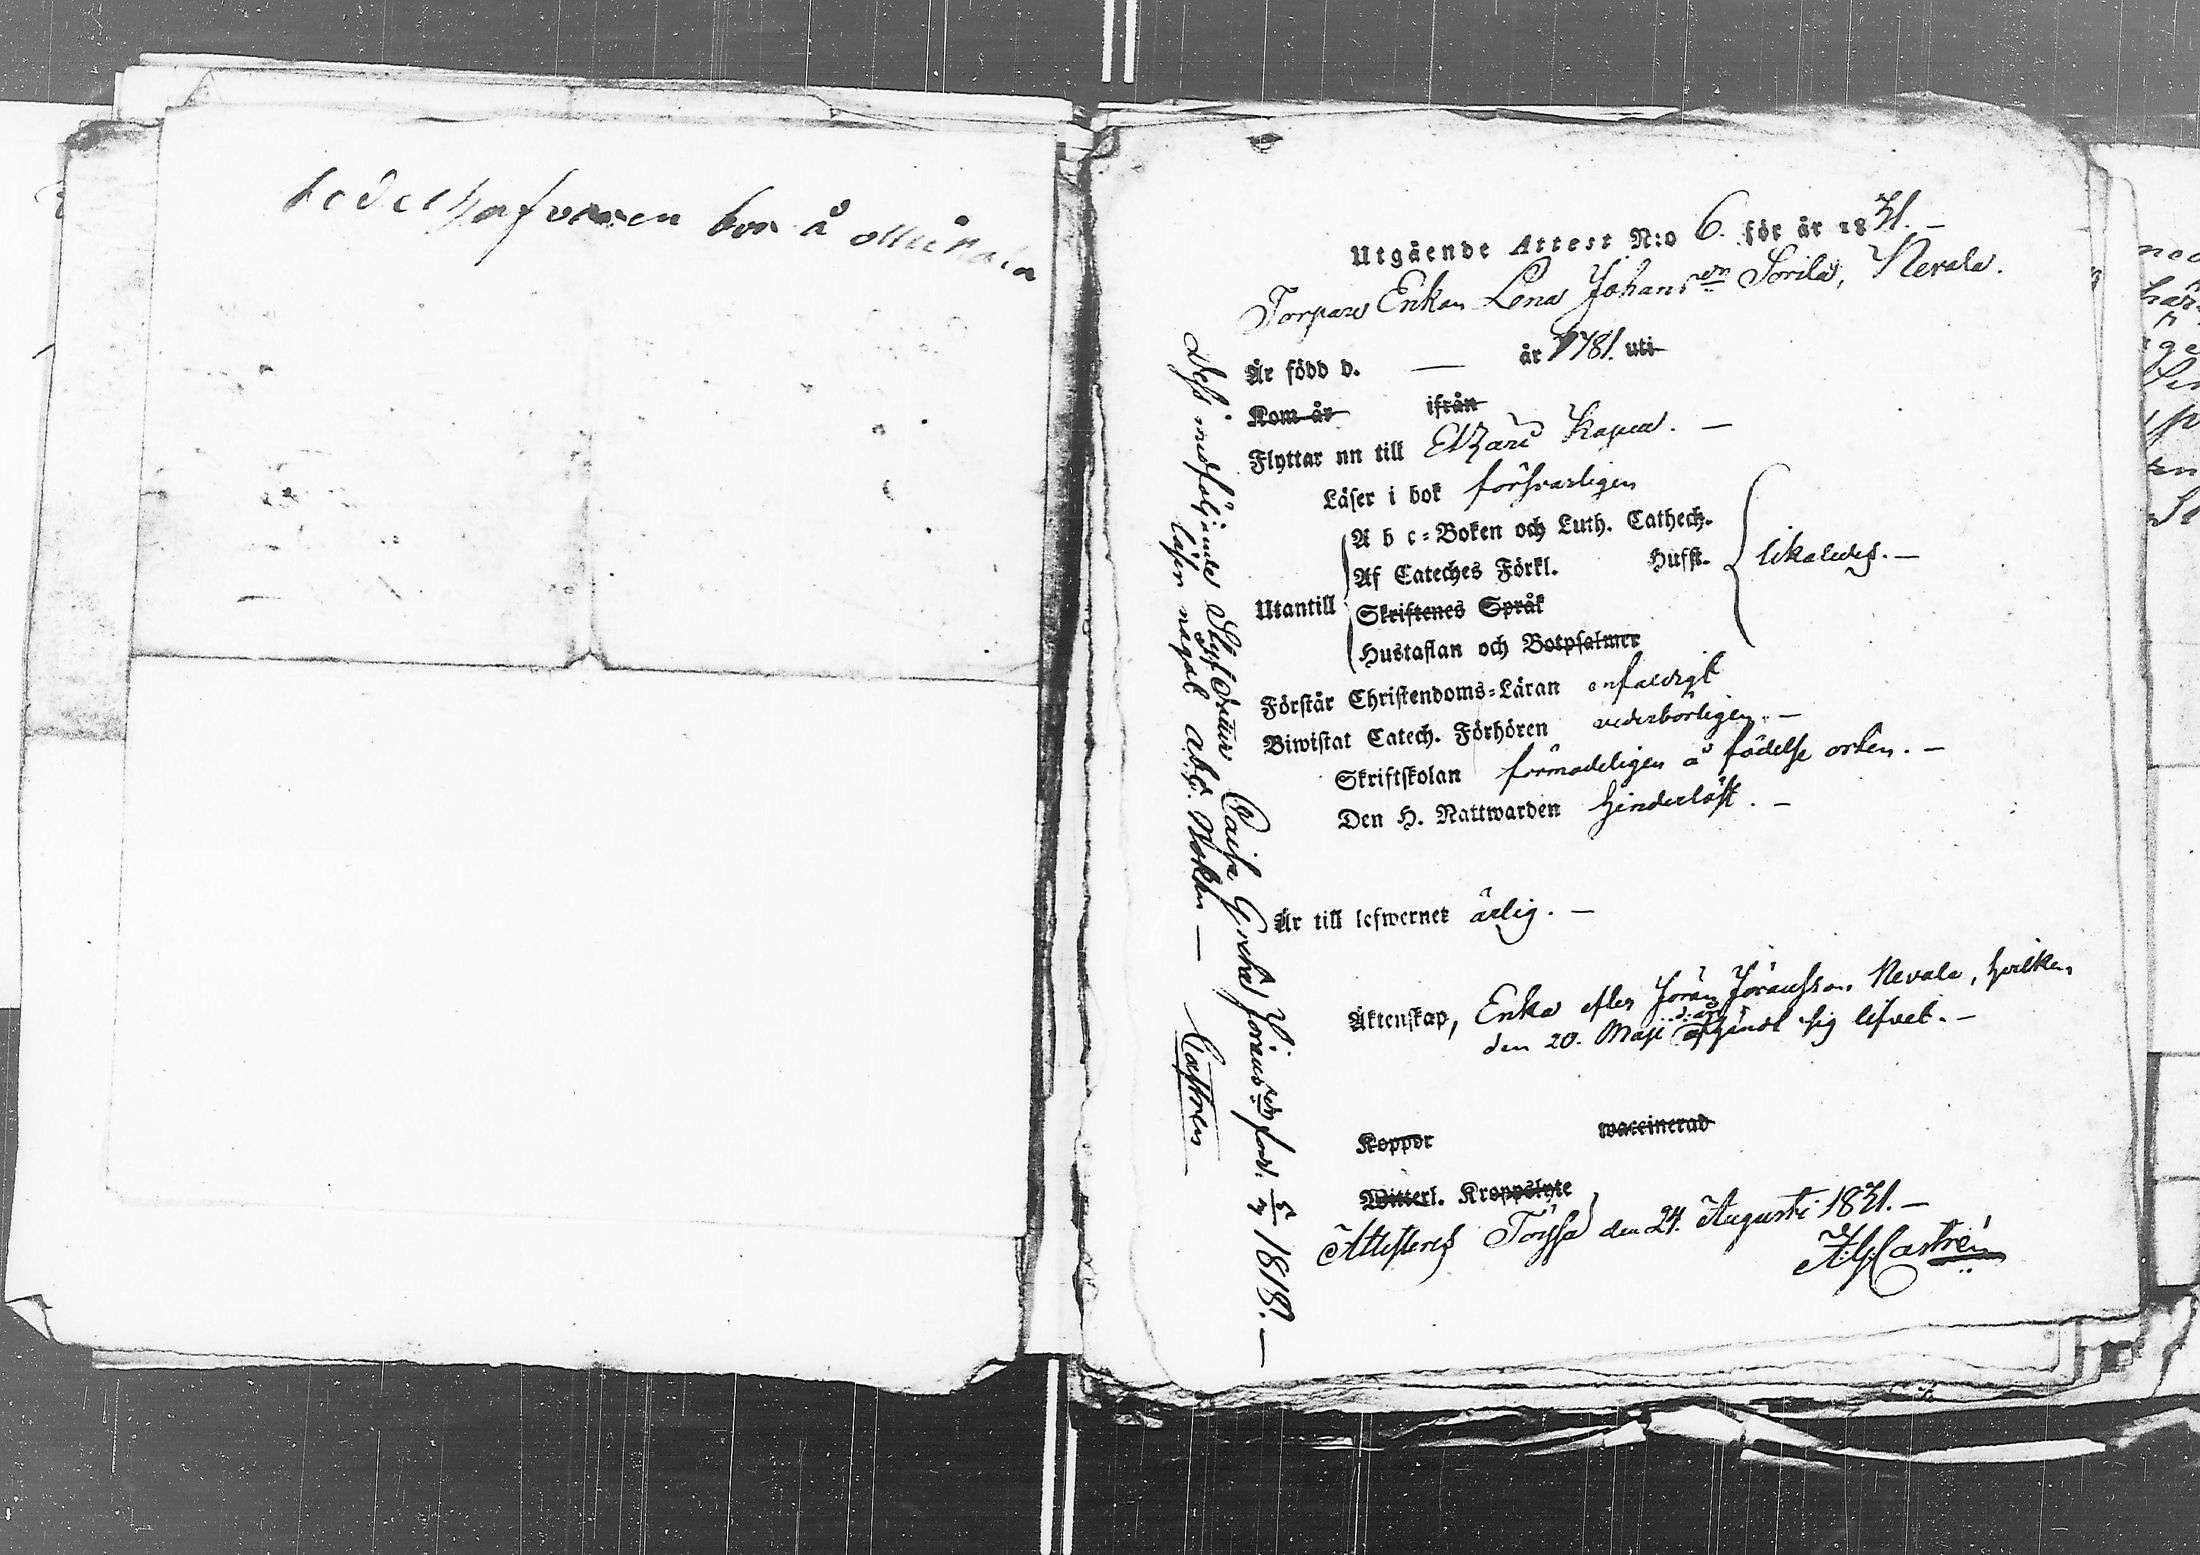 sedelhafvaren bor å
Utgående Attest N:o 6. för år 1831. –
Torpare Enkan Lena Johans dr Sorila, Nevala.
Är född d. — år 1781. uti
Kom år ifrån
Flyttar nu till Etzäri Kapell. –
Läser i bok försvarligen
Utantill
A b c-Boken och Luth. Catech.
Af Cateches Förkl. Husst. likaledes. –
Skriftenes Språk
Hustaflan och Botpsalmer
Förstår Christendoms-Läran enfaldigt
Biwistat Catech. Förhören vederbörligen. –
Skriftskolan förmodeligen å födelse orten. –
Den H. Nattwarden hinderlöst. –
Är till lefwernet ärlig. –
Äktenskap, Enka efter Jöran Jöransson Nevala, hvilken
den 20. Maji d. år afhändt sig lifvet. –
Koppor waccinerad
Witterl. Kroppslyte
Attesteres Töysä den 24. Augusti 1831. –
Castrén
Dess medföljande Styfdotter Caisa Greta Jörans dr född 1818. –
läser något A.b.c. Boken –
Castrén